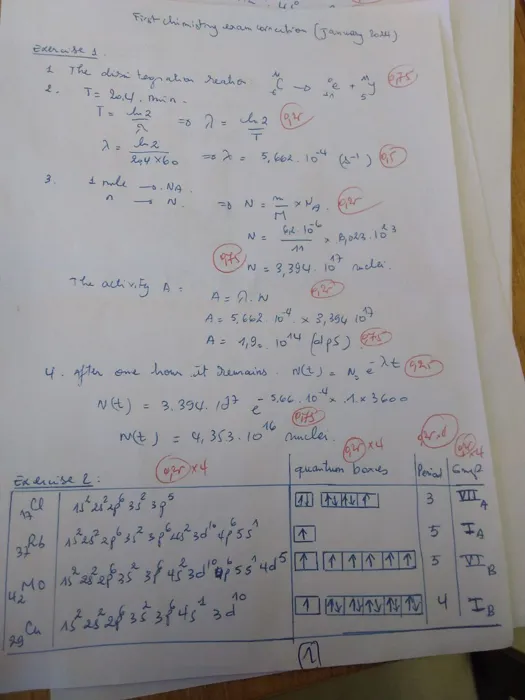 First chemistry exam correction (January 2024)
Exercise 1.
1. The disintegration reaction ¹¹₆C → ⁰₊₁e + ¹¹₅y 0,75
2. T = 20,4 min.
T = ln 2 / λ ⇒ λ = ln 2 / T 0,25
λ = ln 2 / 20,4 × 60 ⇒ λ = 5,662 . 10⁻⁴ (s⁻¹) 0,5
3. 1 mole → NA.
n → N. ⇒ N = m/M × NA. 0,25
N = 6,2 . 10⁻⁶ / 11 × 6,023 . 10²³
0,75 N = 3,394 . 10¹⁷ nuclei.
The activity A =
A = λ . N 0,25
A = 5,662 . 10⁻⁴ × 3,394 10¹⁷
A = 1,92 . 10¹⁴ (dps) 0,75
4. After one hour it remains. N(t) = N₀ e^-λt 0,25
N(t) = 3.394 . 10¹⁷ e^-5,66 . 10⁻⁴ × 1 × 3600
0,75
N(t) = 4,353 . 10¹⁶ nuclei.
Exercise 2: 0,25 × 4 quantum boxes 0,25 × 4 Period Group
₁₇Cl 1s² 2s² 2p⁶ 3s² 3p⁵ ↑↓ ↑↓ ↑↓ ↑ 3 VII A
₃₇Rb 1s² 2s² 2p⁶ 3s² 3p⁶ 4s² 3d¹⁰ 4p⁶ 5s¹ ↑ 5 I A
₄₂Mo 1s² 2s² 2p⁶ 3s² 3p⁶ 4s² 3d¹⁰ 4p⁶ 5s¹ 4d⁵ ↑ ↑ ↑ ↑ ↑ ↑ 5 VI B
₂₉Cu 1s² 2s² 2p⁶ 3s² 3p⁶ 4s¹ 3d¹⁰ ↑ ↑↓ ↑↓ ↑↓ ↑↓ ↑↓ 4 I B
1